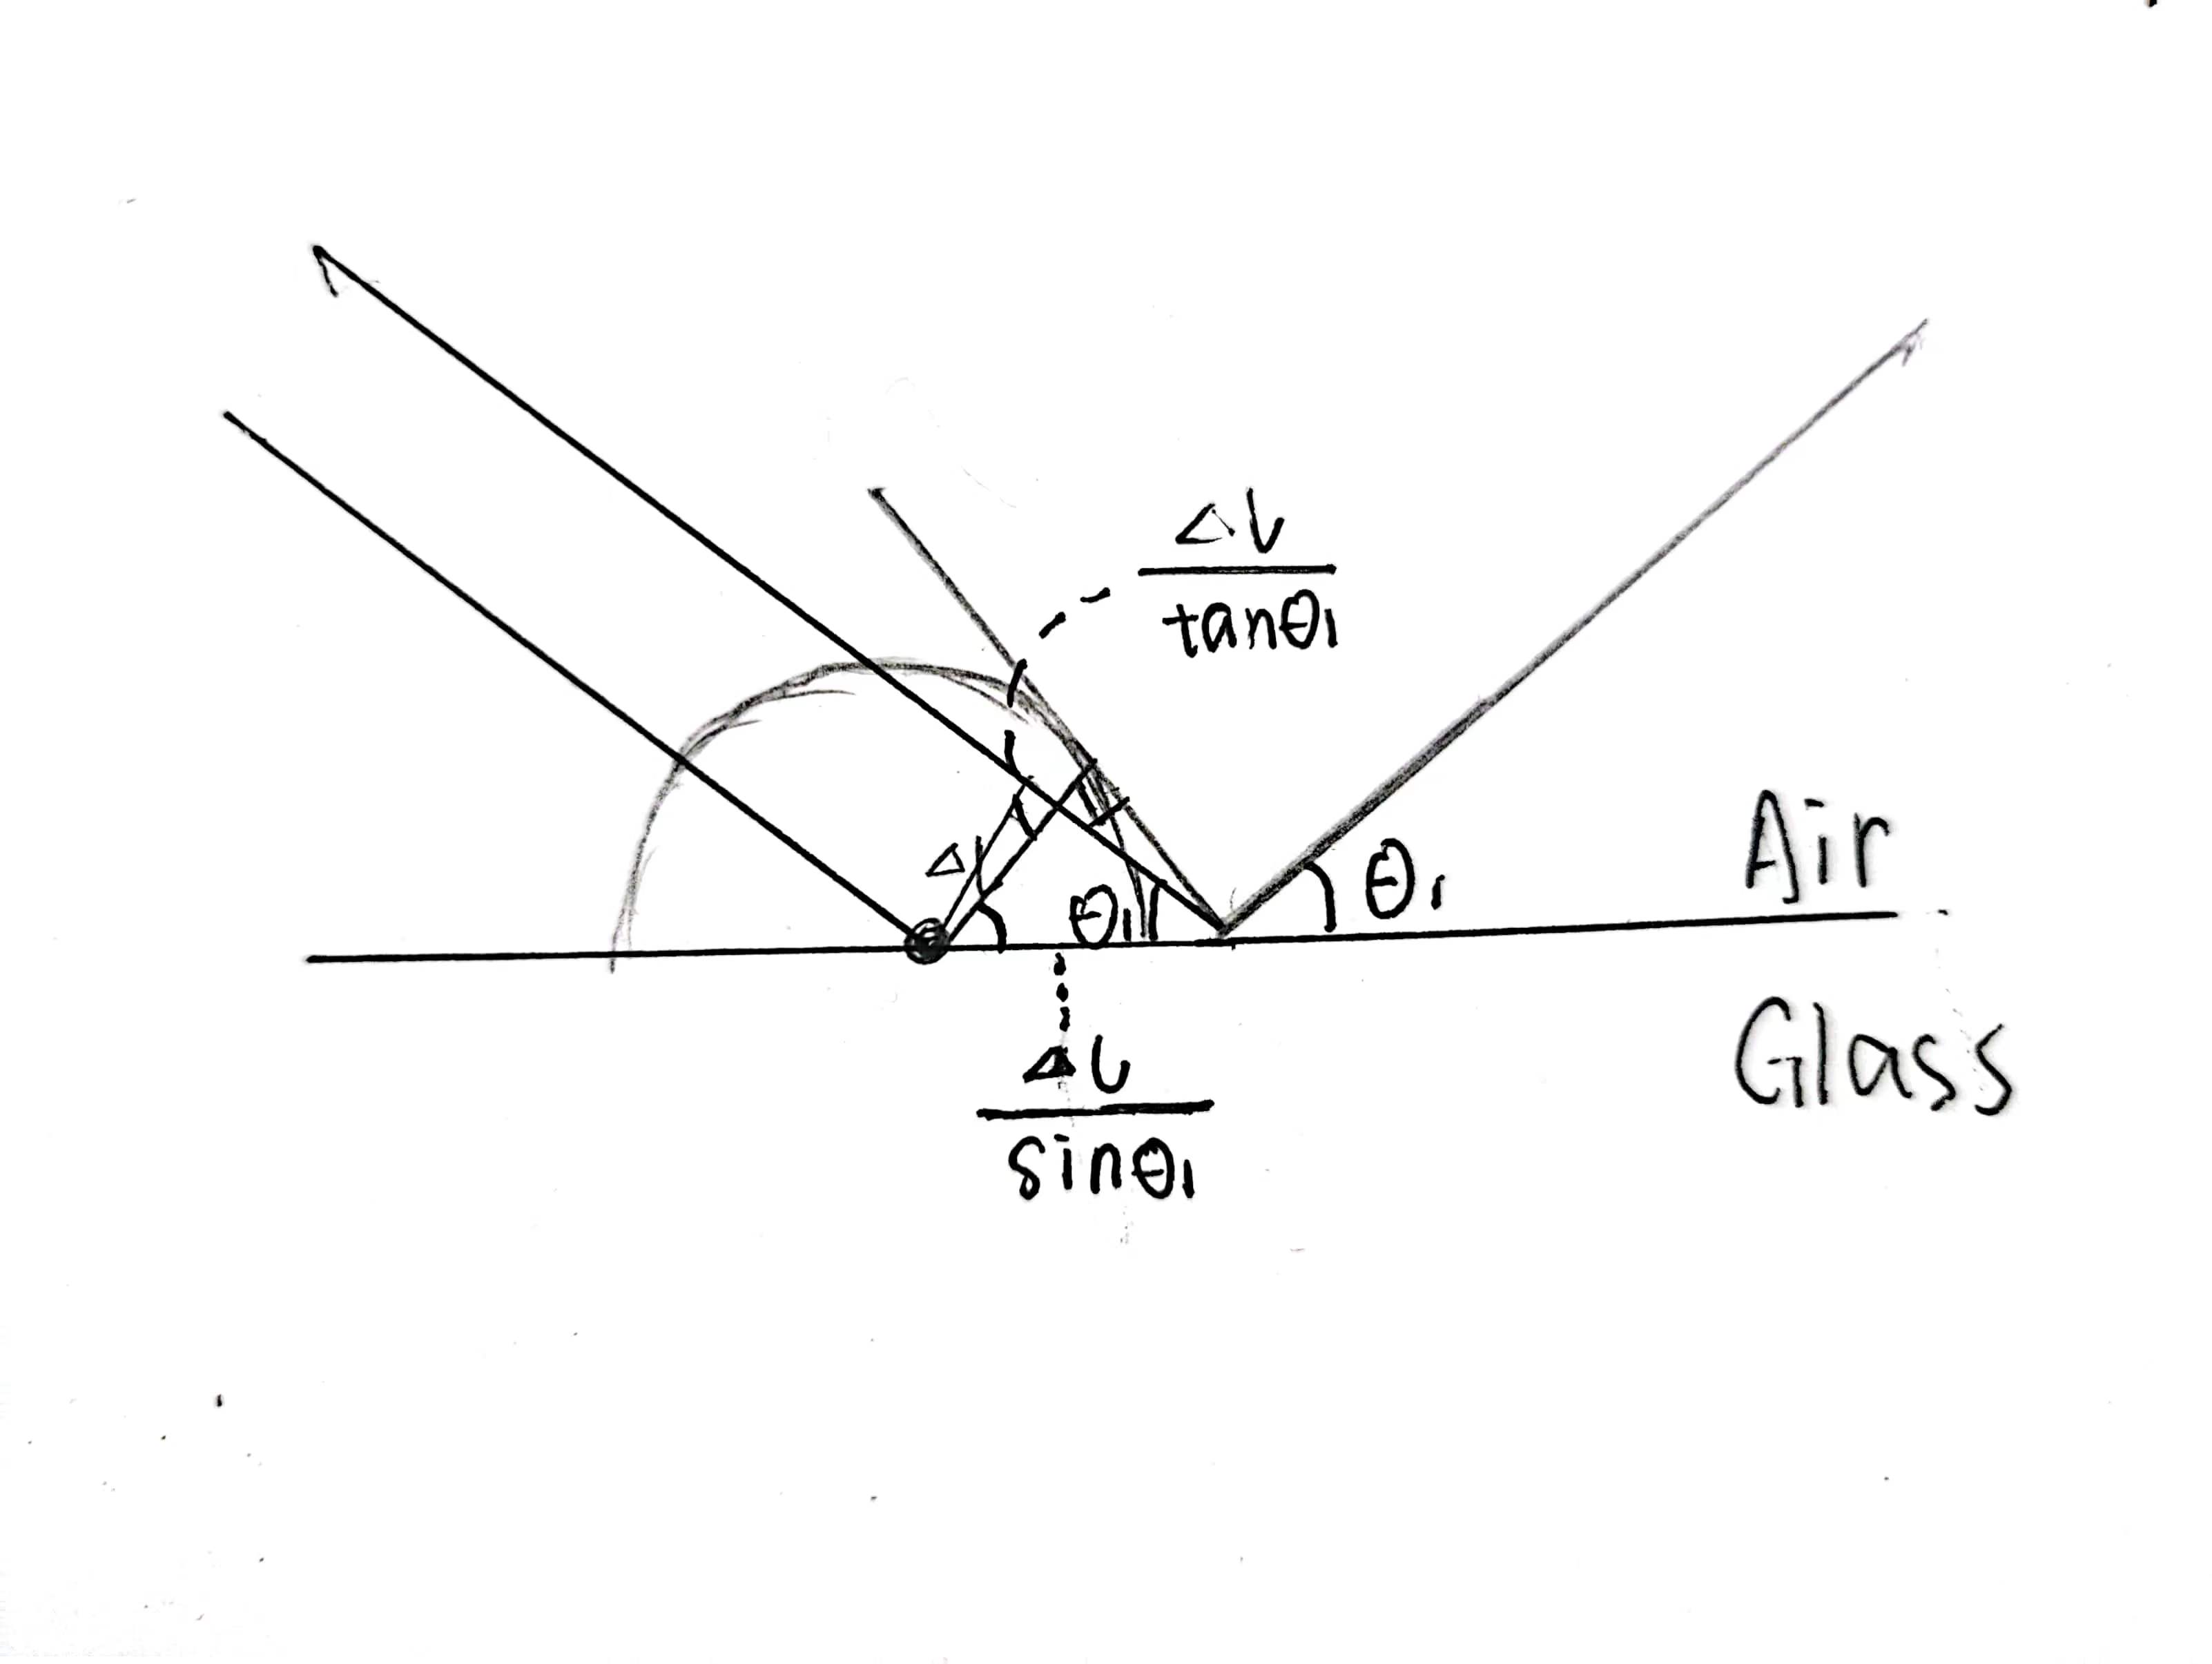 Δl
tanθ₁
Δl
θ₁
θ₁
Air
Glass
Δl
sinθ₁